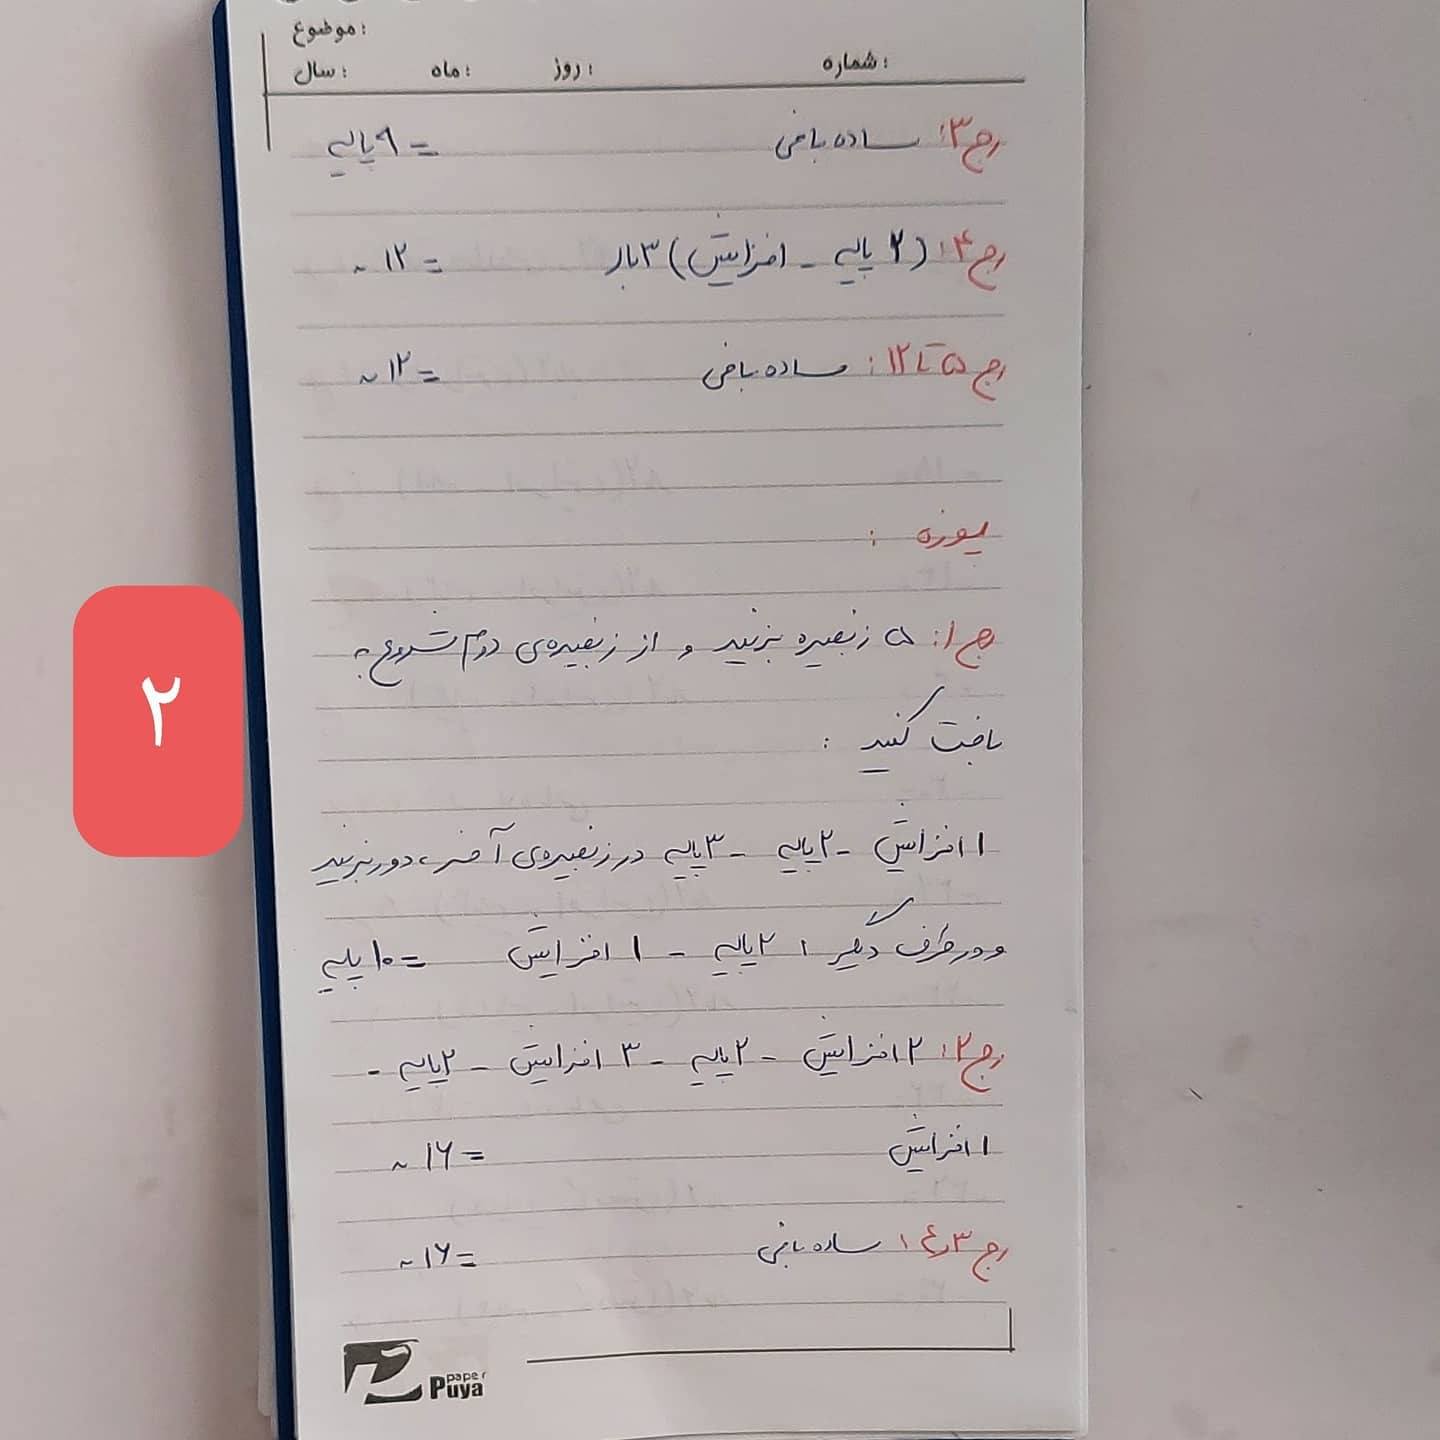 موضوع:
شماره: روز: ماه: سال:
رج ۳: ساده بافی = ۹ پایه
رج ۴: (۲ پایه - افزایش) ۳ بار = ۱۲ ~
رج ۵ تا ۱۲: ساده بافی = ۱۲ ~
پوزه:
رج ۱: ۵ زنجیره بزنید و از زنجیره‌ی دوم شروع به
بافت کنید:
۱ افزایش - ۲ پایه - ۳ پایه در زنجیره‌ی آخر، دور بزنید
و در طرف دیگر، ۲ پایه - ۱ افزایش = ۱۰ پایه
رج ۲: ۲ افزایش - ۲ پایه - ۳ افزایش - ۲ پایه -
۱ افزایش = ۱۶ ~
رج ۳ و ٤: ساده بافی = ۱۶ ~
۲
paper
Puya